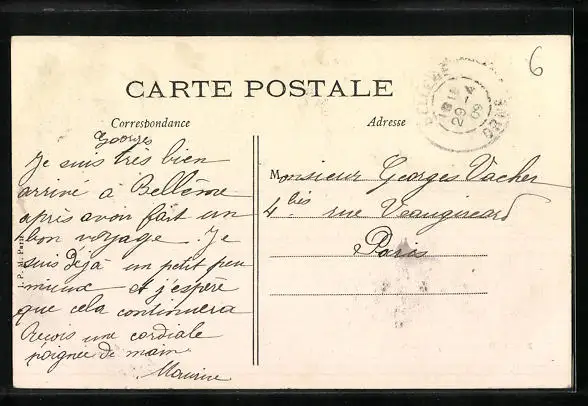 6
CARTE POSTALE
Correspondance
Adresse
Georges
Je suis très bien
arrivé à Bellême
après avoir fait un
bon voyage. Je
suis Déjà un petit peu
mieux et j'espère
que cela continuera
Reçois une cordiale
poignée de main
Maurice
Monsieur Georges Vacher
4 bis rue Vaugirard
Paris
BELLÊME
29 - 4
09
ORNE
P. H. Paris